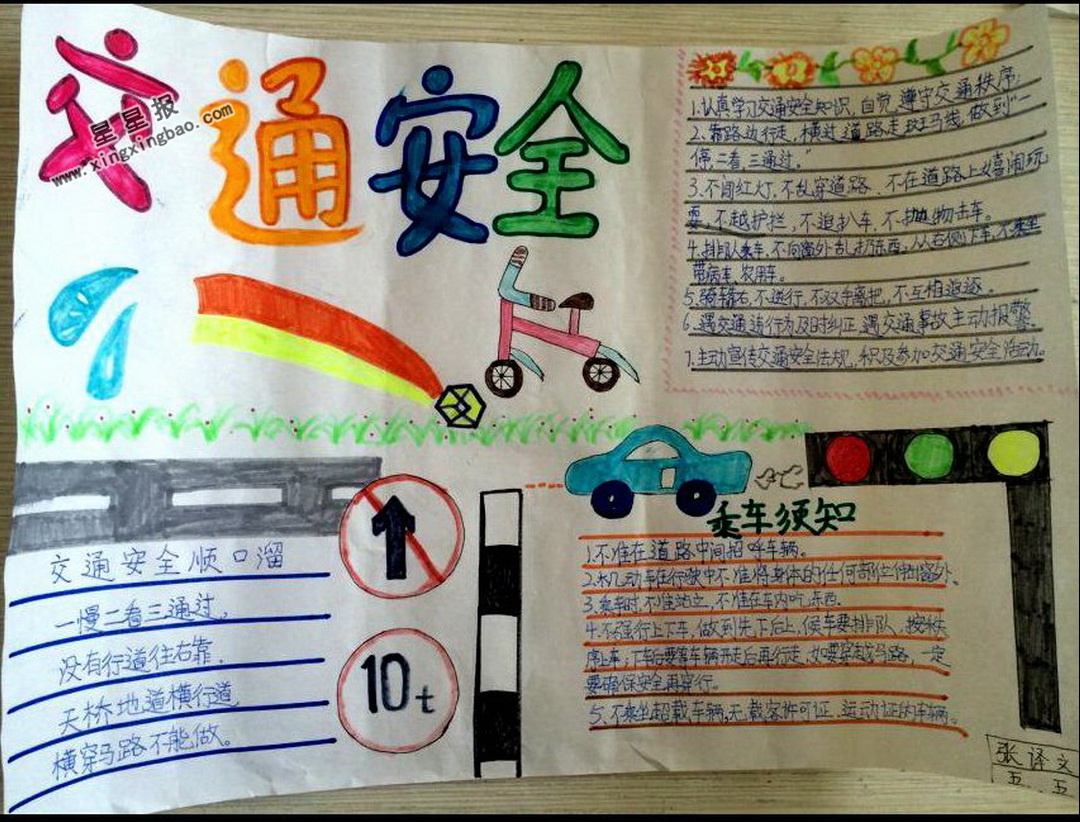 交通安全
星星报
www.xingxingbao.com
1.认真学习交通安全知识，自觉遵守交通秩序；
2.靠路边行走，横过道路走斑马线，做到“一
停二看三通过。”
3.不闯红灯，不乱穿道路、不在道路上嬉闹玩
耍，不越护拦，不追扒车，不抛物击车。
4.排队乘车，不向窗外乱扔东西，从右侧下车，不乘坐
带病车、农用车。
5.骑靠右，不逆行，不双手离把，不互相追逐。
6.遇交通违行为及时纠正，遇交通事故主动报警。
7.主动宣传交通安全法规，积及参加交通安全活动。
交通安全顺口溜
一慢二看三通过，
没有行道往右靠，
天桥地道横行道，
横穿马路不能做。
10t
乘车须知
1.不准在道路中间招呼车辆。
2.机动车在行驶中不准将身体的任何部位伸出窗外。
3.乘车时，不准站立，不准在车内吃东西。
4.不强行上下车，做到先下后上，候车要排队，按秩
序上车；下车后要等车辆开走后再行走，如要穿越马路，一定
要确保安全再穿行。
5.不乘坐超载车辆，无载客许可证、运动证的车辆。
张译文
五.五